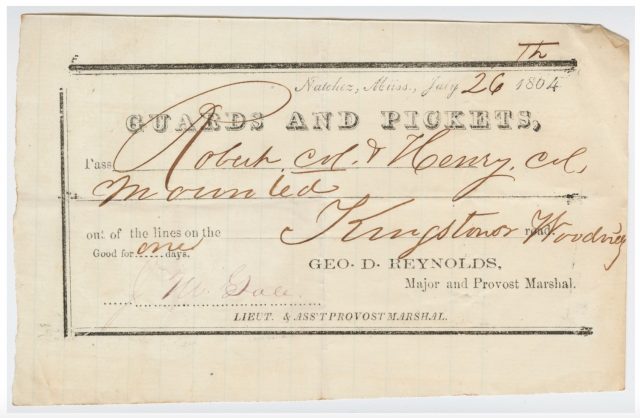 Natchez, Miss., July 26th 1864
GUARDS AND PICKETS,
Pass Robert col. & Henry, col.
mounted
out of the lines on the Kingston or Woodville road.
Good for one days.
GEO. D. REYNOLDS,
Major and Provost Marshal.
LIEUT. & ASS'T PROVOST MARSHAL.